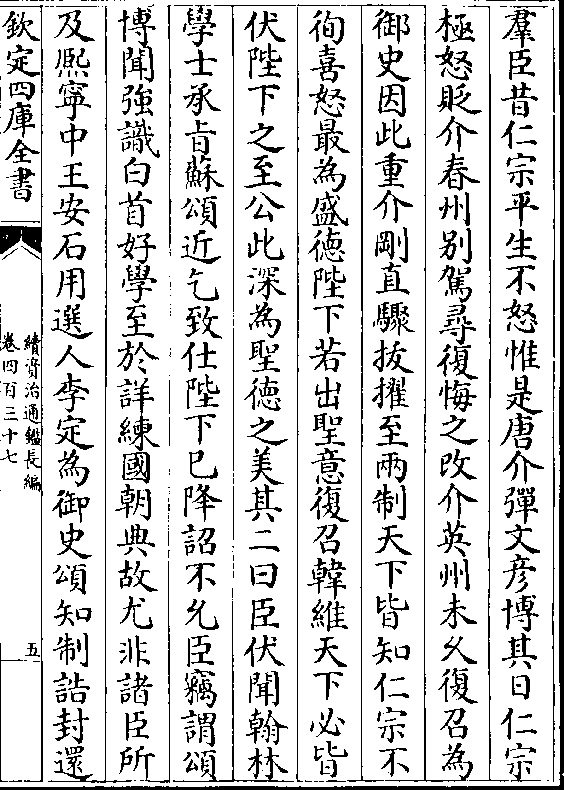 羣臣昔仁宗平生不怒惟是唐介彈文彦博其日仁宗
極怒貶介春州别駕尋復悔之改介英州未久復召為
御史因此重介剛直驟拔擢至兩制天下皆知仁宗不
徇喜怒最為盛徳陛下若出聖意復召韓維天下必皆
伏陛下之至公此深為聖徳之美其二曰臣伏聞翰林
學士承㫖蘇頌近乞致仕陛下已降詔不允臣竊謂頌
博聞強識白首好學至於詳練國朝典故尤非諸臣所
及熈寧中王安石用選人李定為御史頌知制誥封還
欽定四庫全書
續資治通鑑長編
卷四百三十七
五